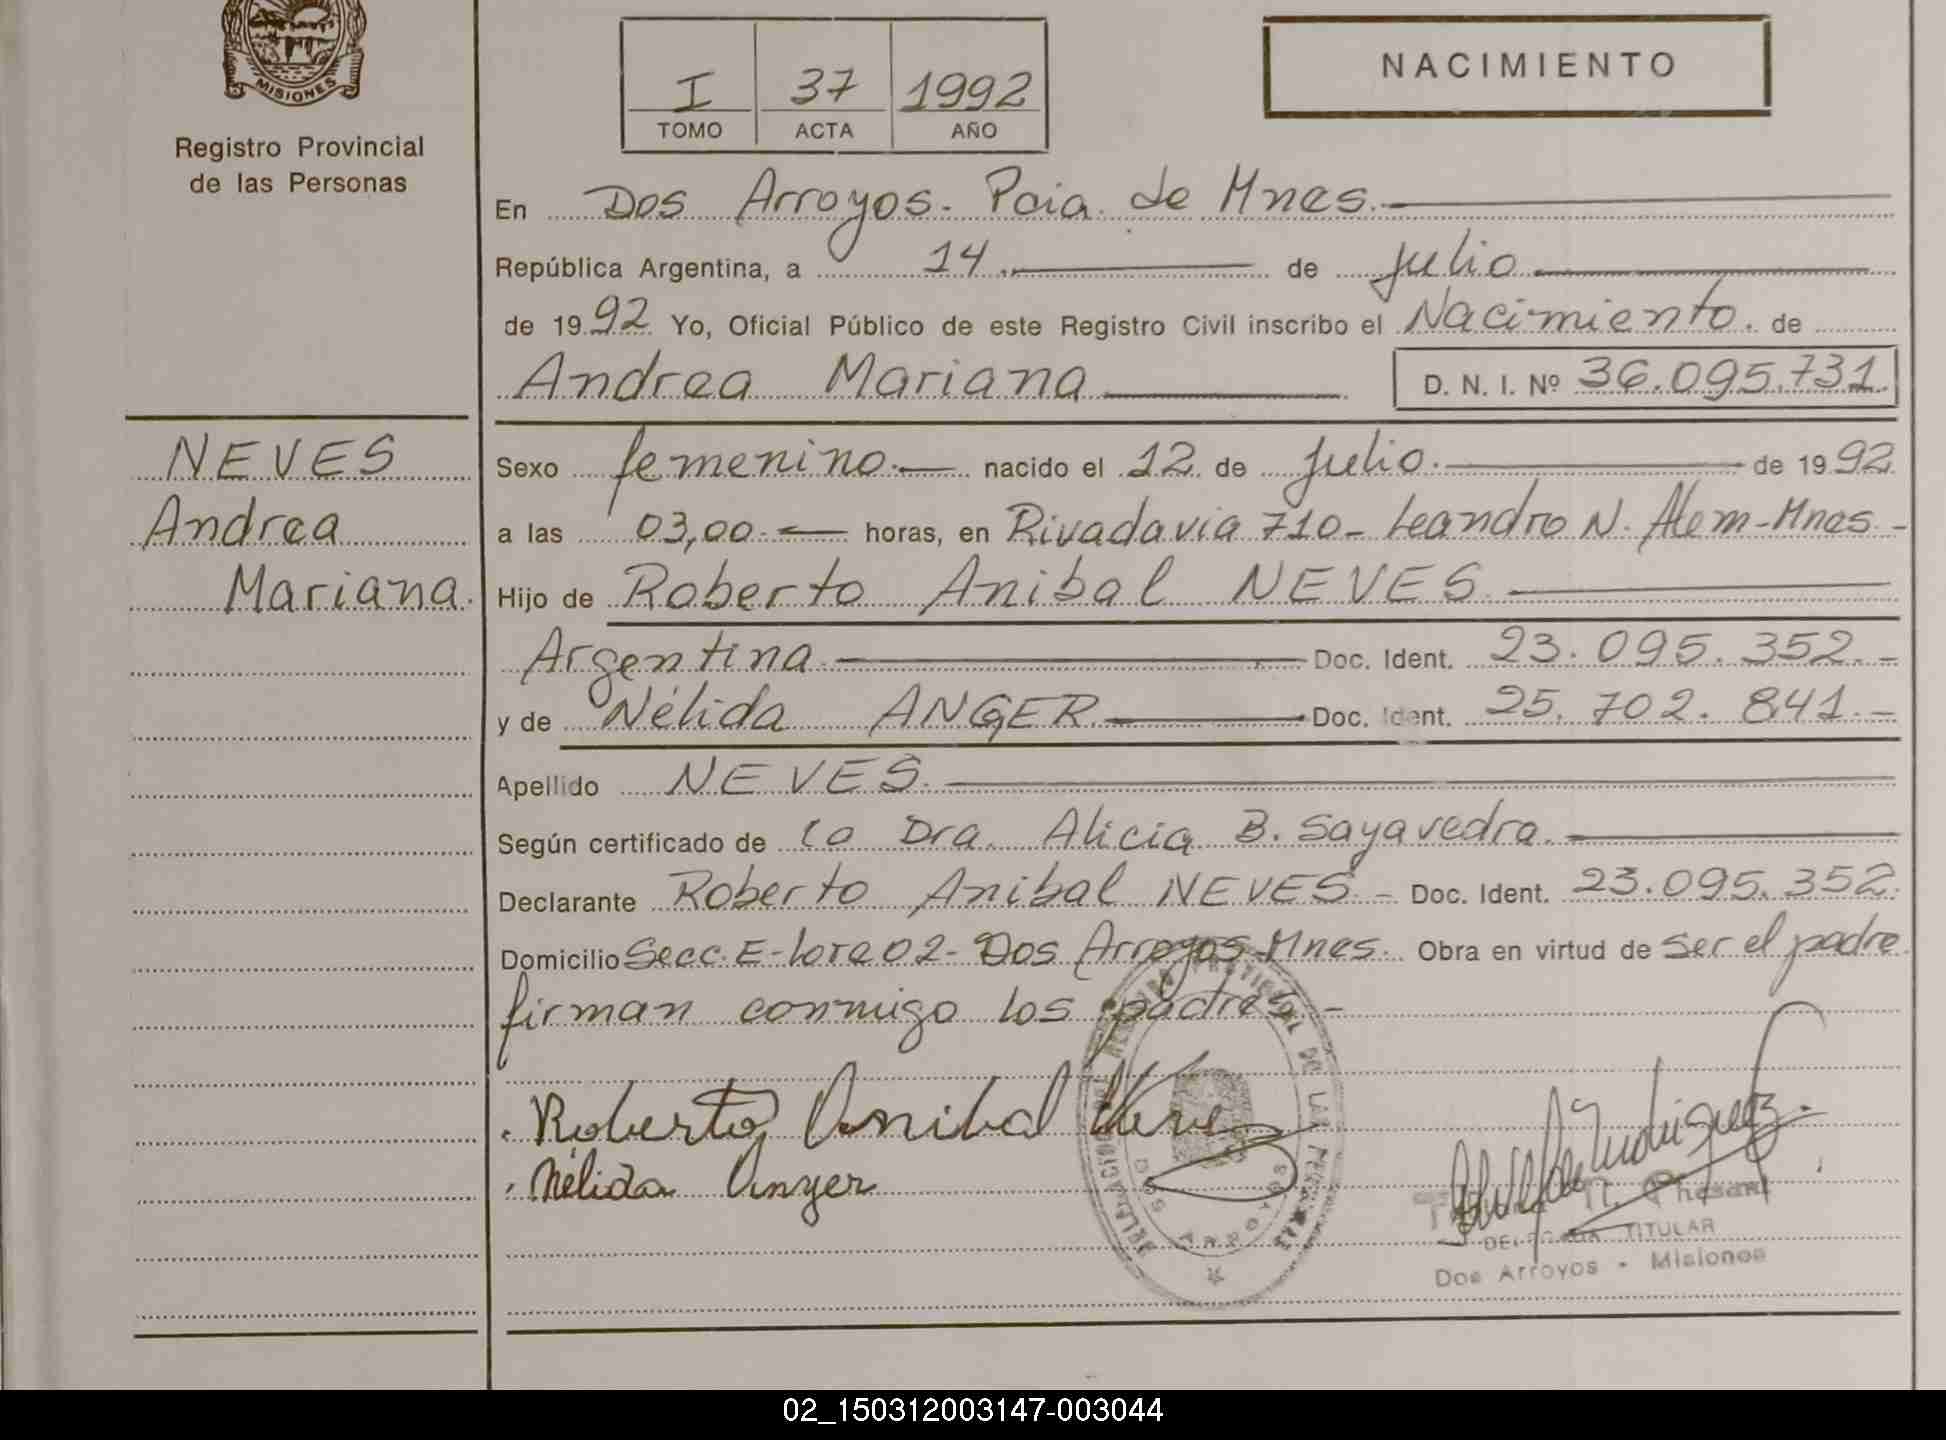 MISIONES
Registro Provincial
de las Personas
I 37 1992
TOMO ACTA AÑO
NACIMIENTO
En Dos Arroyos. Pcia. de Mnes.
República Argentina, a 14. de julio
de 1992 Yo, Oficial Público de este Registro Civil inscribo el Nacimiento. de
Andrea Mariana D. N. I. Nº 36.095.731
NEVES
Andrea
Mariana.
Sexo femenino. nacido el 12 de julio. de 1992
a las 03,00. horas, en Rivadavia 710- Leandro N. Alem-Mnes.-
Hijo de Roberto Anibal NEVES.
Argentina. Doc. Ident. 23.095.352.-
y de Nélida ANGER. Doc. Ident. 25.702.841.-
Apellido NEVES.
Según certificado de la Dra. Alicia B. Sayavedra.
Declarante Roberto Anibal NEVES.- Doc. Ident. 23.095.352.
Domicilio Secc. E-lote 02- Dos Arroyos-Mnes. Obra en virtud de ser el padre
firman conmigo los padres.-
Roberto Anibal Neves
Nélida Anger
DOS ARROYOS
TITULAR
Dos Arroyos - Misiones
02_150312003147-003044